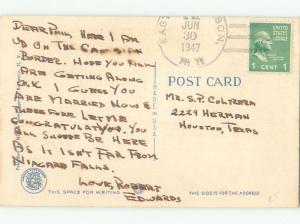 DEAR PHIL, HERE I AM
UP ON THE CANADIAN
BORDER. HOPE YOU
ARE GETTING ALONG
O.K. I GUESS YOU
ARE MARRIED NOW &
THEREFORE LET ME
CONGRATULATE YOU. YOU
ALL SHOULD BE HERE
AS IT ISN'T FAR FROM
NIAGARA FALLS.
LOVE, ROBERT
EDWARDS
THIS SPACE FOR WRITING
JUN
30
1947
1 CENT 1
POST CARD
MR. S.P.
2229 HERMAN
HOUSTON, TEXAS
THIS SIDE IS FOR THE ADDRESS